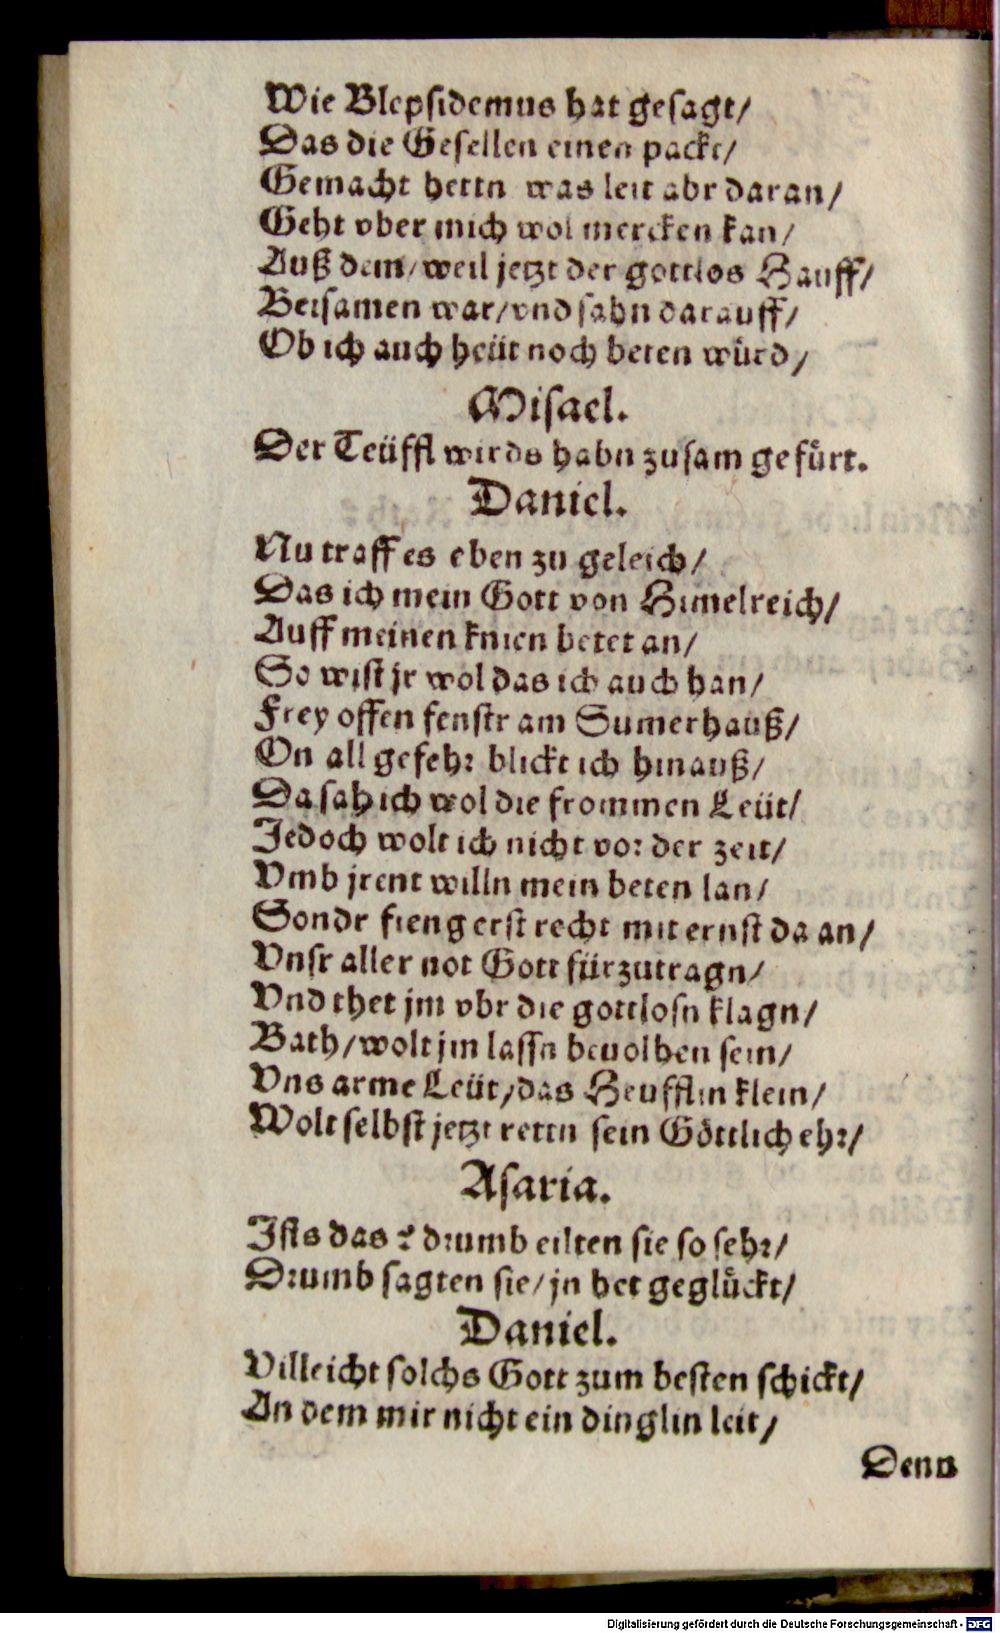 Wie Blepsidemus hat gesagt/
Das die Gesellen einen packt/
Gemacht hettn was leit abr daran/
Geht vber mich wol mercken kan/
Auß dem/weil jetzt der gottlos Hauff/
Beisamen war/vnd sahn darauff/
Ob ich auch heüt noch beten würd/
Misael.
Der Teüffl wirds habn zusam gefürt.
Daniel.
Nu traff es eben zu geleich/
Das ich mein Gott von Himelreich/
Auff meinen knien betet an/
So wist jr wol das ich auch han/
Frey offen fenstr am Sumerhauß/
On all gefehr blickt ich hinauß/
Da sah ich wol die frommen Leüt/
Jedoch wolt ich nicht vor der zeit/
Vmb jrent willn mein beten lan/
Sondr fieng erst recht mit ernst da an/
Vnsr aller not Gott fürzutragn/
Vnd thet jm vbr die gottlosn klagn/
Bath/wolt jm lassn beuolhen sein/
Vns arme Leüt/das Heufflin klein/
Wolt selbst jetzt rettn sein Göttlich ehr/
Asaria.
Ists das? drumb eilten sie so sehr/
Drumb sagten sie/jn het geglückt/
Daniel.
Villeicht solchs Gott zum besten schickt/
An dem mir nicht ein dinglin leit/
Denn
Digitalisierung gefördert durch die Deutsche Forschungsgemeinschaft - DFG